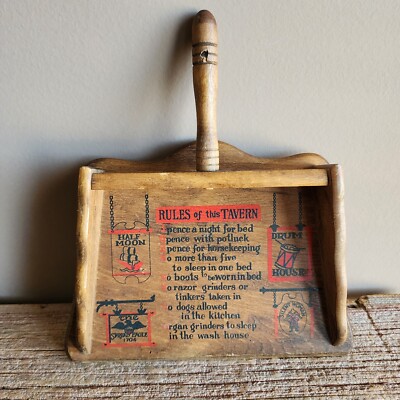 RULES of this TAVERN
pence a night for bed
pence with potluck
pence for horsekeeping
o more than five
to sleep in one bed
o boots to be worn in bed
o razor grinders or
tinkers taken in
o dogs allowed
in the kitchen
rgan grinders to sleep
in the wash house
HALF
MOON
DRUM
HOUSE
THE
SPREAD EAGLE
1704